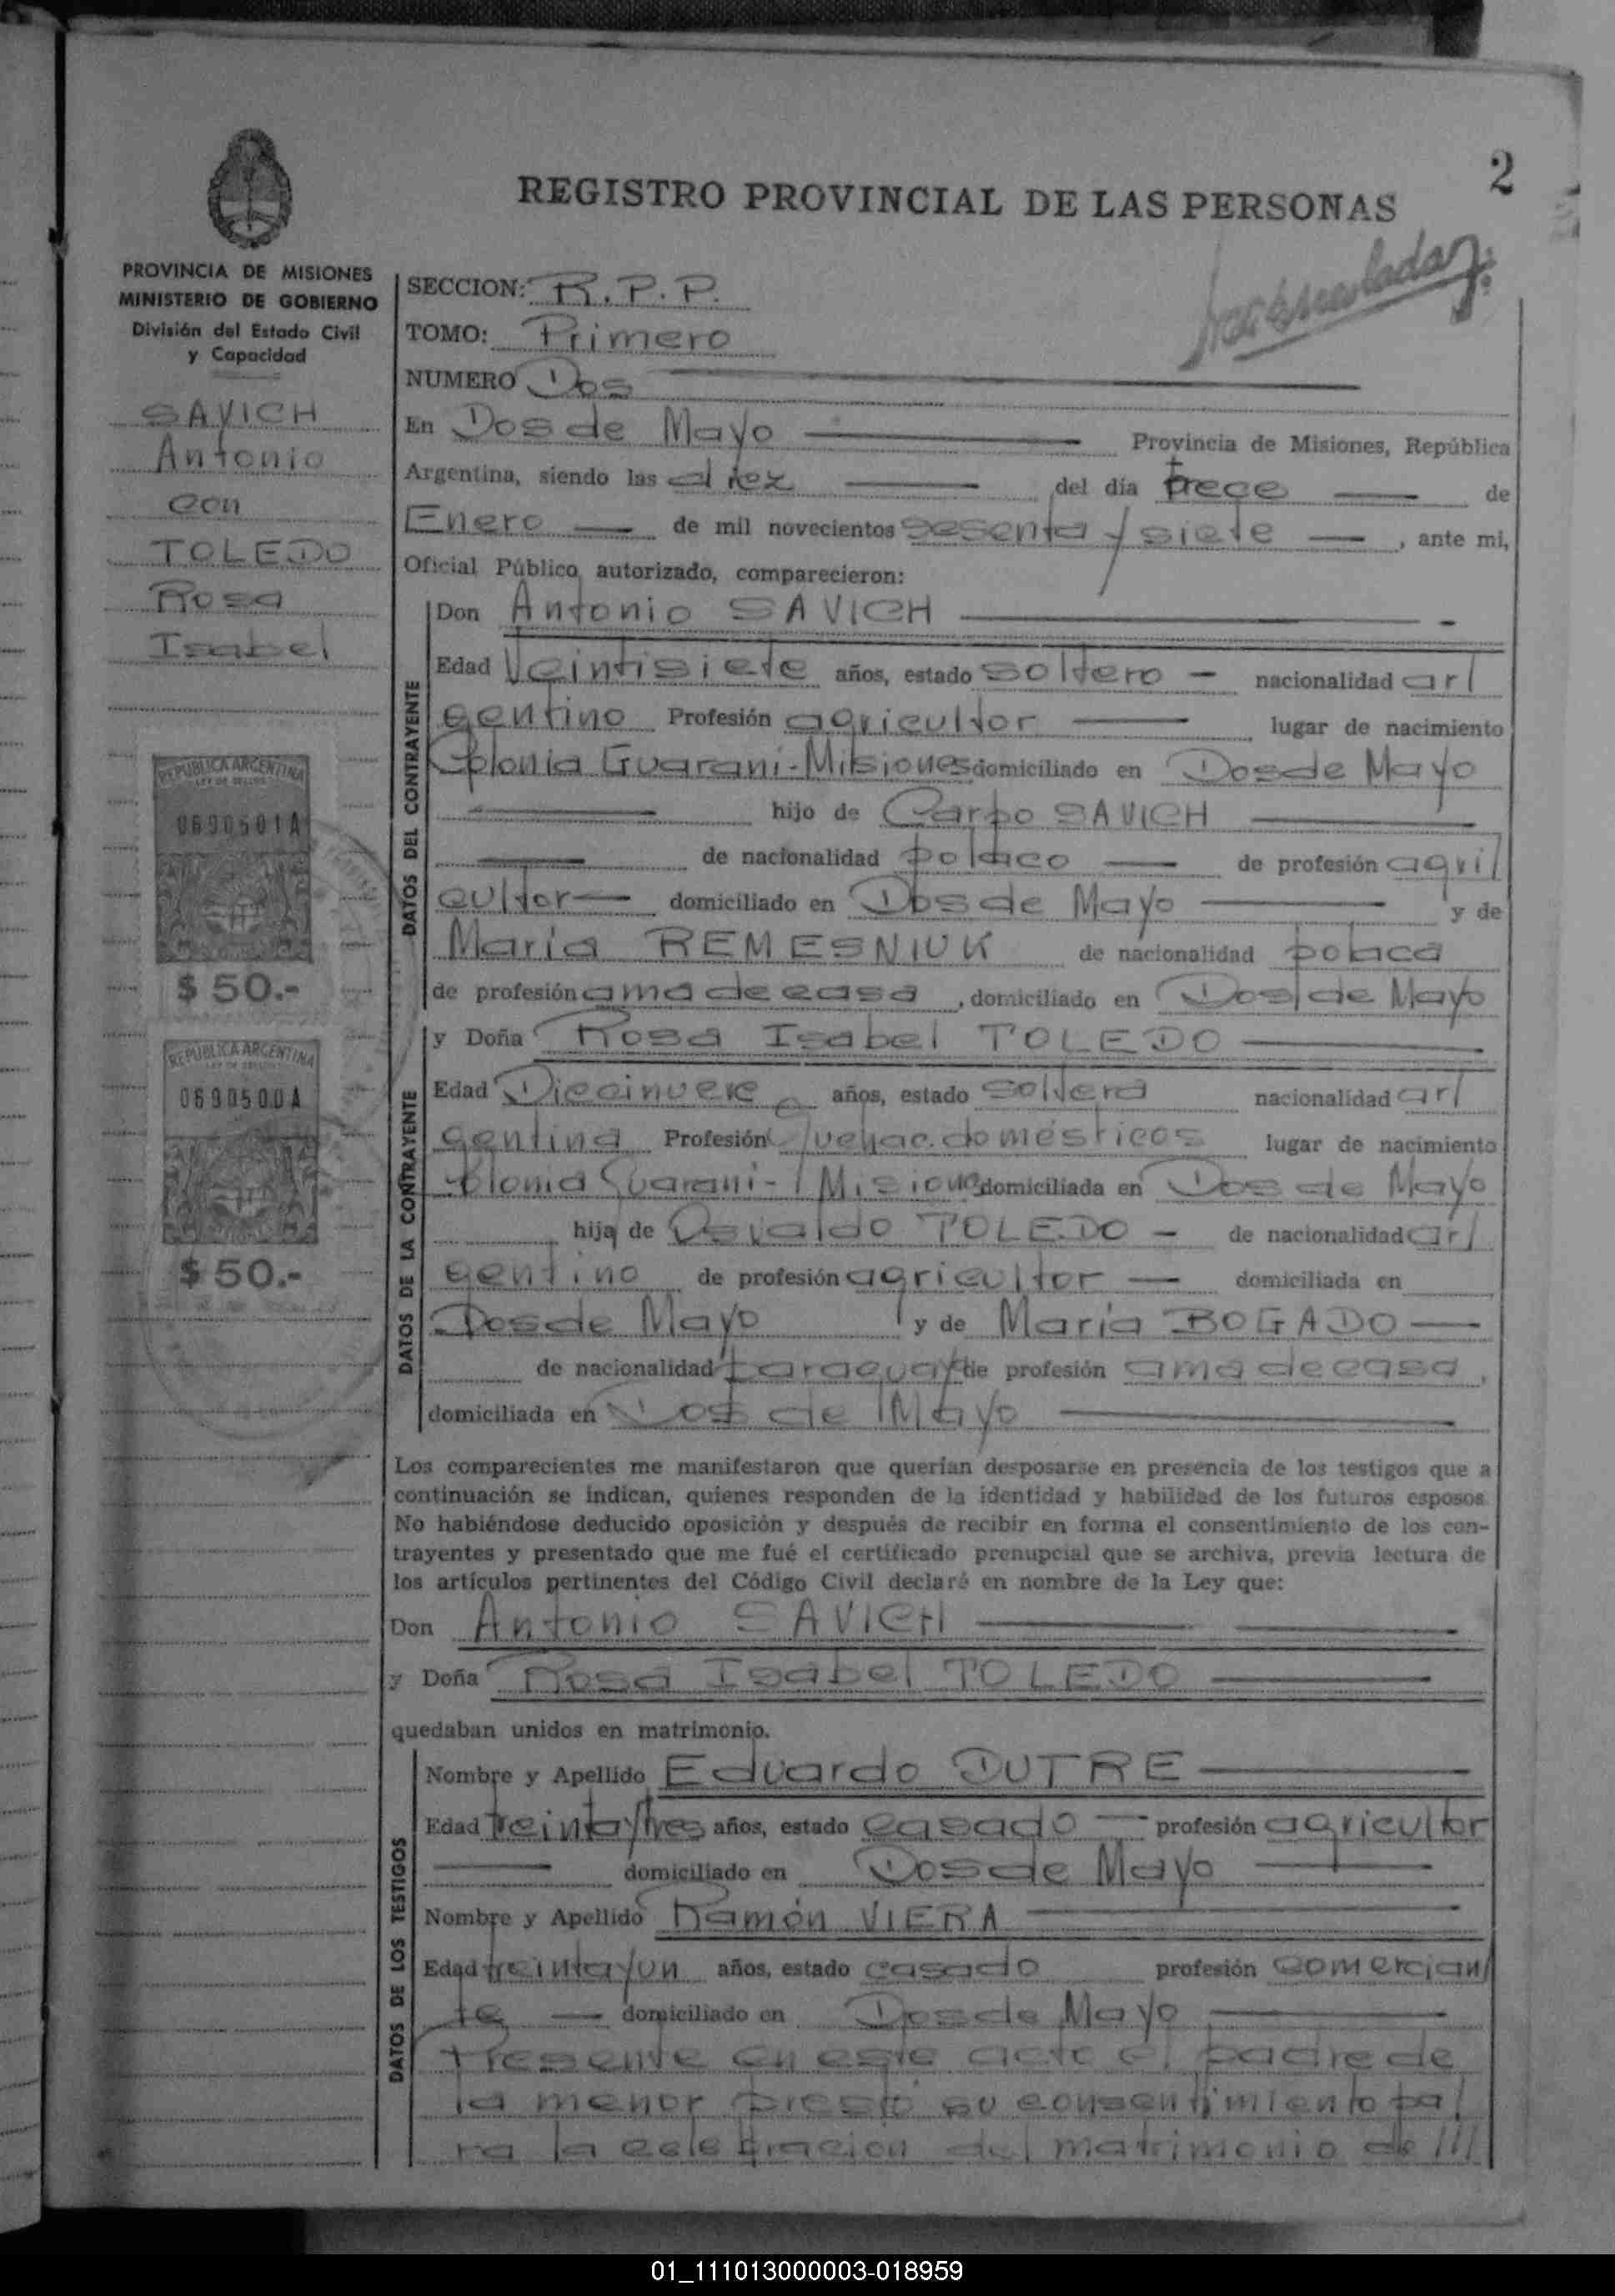 2
REGISTRO PROVINCIAL DE LAS PERSONAS
PROVINCIA DE MISIONES
MINISTERIO DE GOBIERNO
División del Estado Civil
y Capacidad
SAVICH
Antonio
con
TOLEDO
Rosa
Isabel
REPUBLICA ARGENTINA
LEY DE SELLOS
0690501A
$ 50.-
REPUBLICA ARGENTINA
LEY DE SELLOS
0690500A
$ 50.-
SECCION: R.P.P.
TOMO: Primero
NUMERO Dos
En Dos de Mayo Provincia de Misiones, República
Argentina, siendo las diez del día trece de
Enero de mil novecientos sesenta y siete, ante mi,
Oficial Público autorizado, comparecieron:
DATOS DEL CONTRAYENTE
Don Antonio SAVICH
Edad Veintisiete años, estado soltero nacionalidad ar/
gentino Profesión agricultor lugar de nacimiento
Colonia Guaraní-Misiones domiciliado en Dos de Mayo
hijo de Carpo SAVICH
de nacionalidad polaco de profesión agri/
cultor domiciliado en Dos de Mayo y de
María REMESNIUK de nacionalidad polaca
de profesión ama de casa, domiciliado en Dos de Mayo
DATOS DE LA CONTRAYENTE
y Doña Rosa Isabel TOLEDO
Edad Diecinueve años, estado soltera nacionalidad ar/
gentina Profesión quehac. domésticos lugar de nacimiento
Colonia Guaraní-Misiones domiciliada en Dos de Mayo
hija de Osvaldo TOLEDO de nacionalidad ar/
gentino de profesión agricultor domiciliada en
Dos de Mayo y de María BOGADO
de nacionalidad paraguay de profesión ama de casa,
domiciliada en Dos de Mayo
Los comparecientes me manifestaron que querían desposarse en presencia de los testigos que a
continuación se indican, quienes responden de la identidad y habilidad de los futuros esposos.
No habiéndose deducido oposición y después de recibir en forma el consentimiento de los con-
trayentes y presentado que me fué el certificado prenupcial que se archiva, previa lectura de
los artículos pertinentes del Código Civil declaré en nombre de la Ley que:
Don Antonio SAVICH
y Doña Rosa Isabel TOLEDO
quedaban unidos en matrimonio.
DATOS DE LOS TESTIGOS
Nombre y Apellido Eduardo DUTRE
Edad treinta y tres años, estado casado profesión agricultor
domiciliado en Dos de Mayo
Nombre y Apellido Ramón VIERA
Edad treinta y un años, estado casado profesión comercian/
te domiciliado en Dos de Mayo
Presente en este acto el padre de
la menor prestó su consentimiento pa/
ra la celebración del matrimonio de ///
01_111013000003-018959